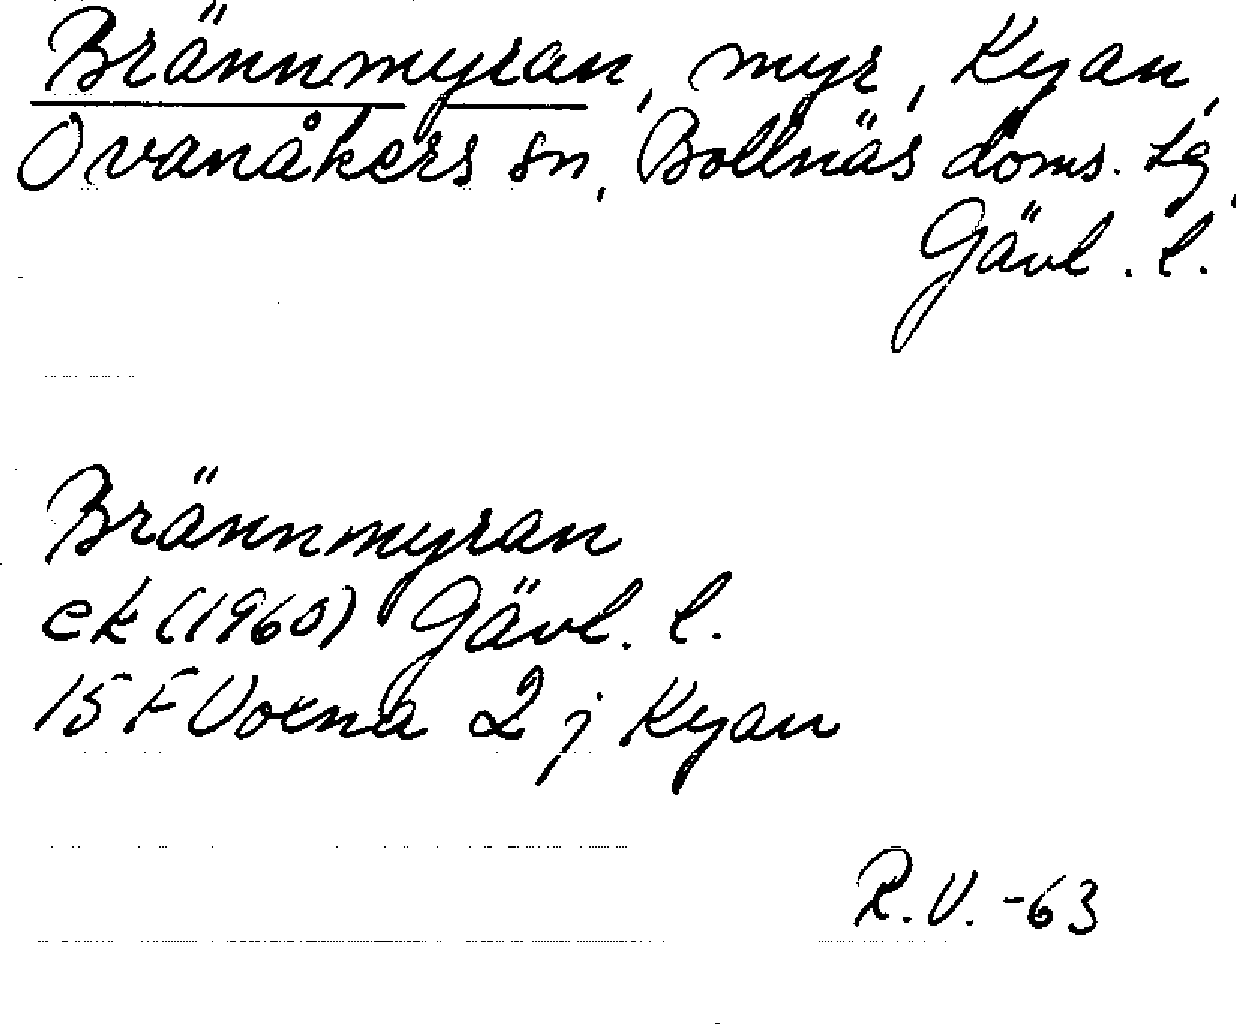 Brännmyran, myr, Kyan,
Ovanåkers sn, Bollnäs doms. tg,
Gävl. l.
Brännmyran
ek (1960) Gävl. l.
15 F Voxna 2 j Kyan
R.V. -63